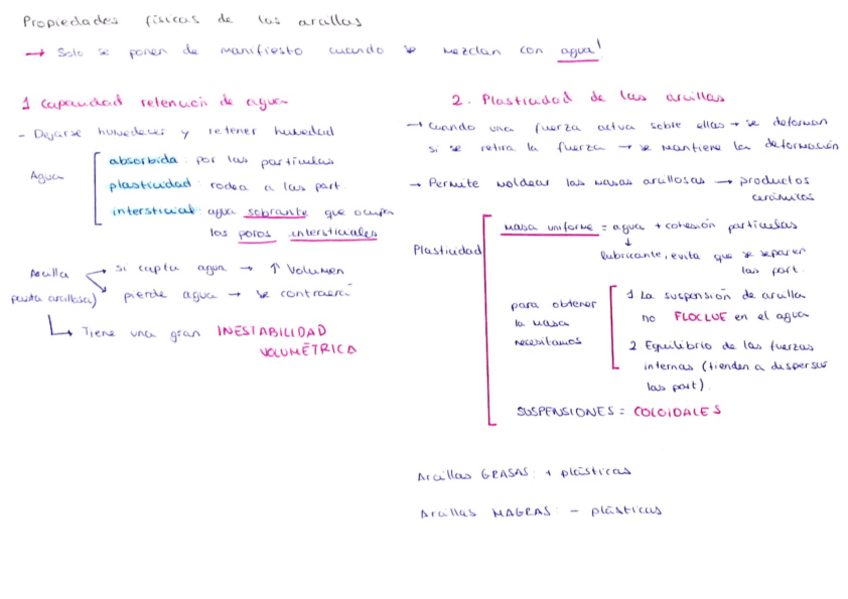 Propiedades físicas de las arcillas
→ Solo se ponen de manifiesto cuando se mezclan con agua!
1 Capacidad retención de agua
- Dejarse humedecer y retener humedad
Agua
absorbida: por las partículas
plasticidad: rodea a las part
intersticial: agua sobrante que ocupa
los poros intersticiales
Arcilla
(pasta arcillosa)
si capta agua → ↑ Volumen
pierde agua → se contraerá
Tiene una gran INESTABILIDAD
VOLUMÉTRICA
2. Plasticidad de las arcillas
→ Cuando una fuerza actúa sobre ellas → se deforman
si se retira la fuerza → se mantiene la deformación
→ Permite moldear las masas arcillosas → productos
cerámicos
Plasticidad
masa uniforme = agua + cohesión partículas
↓
lubricante, evita que se separen
las part.
para obtener
la masa
necesitamos
1 La suspensión de arcilla
no FLOCULE en el agua
2 Equilibrio de las fuerzas
internas (tienden a dispersar
las part).
SUSPENSIONES = COLOIDALES
Arcillas GRASAS: + plásticas
Arcillas MAGRAS: - plásticas